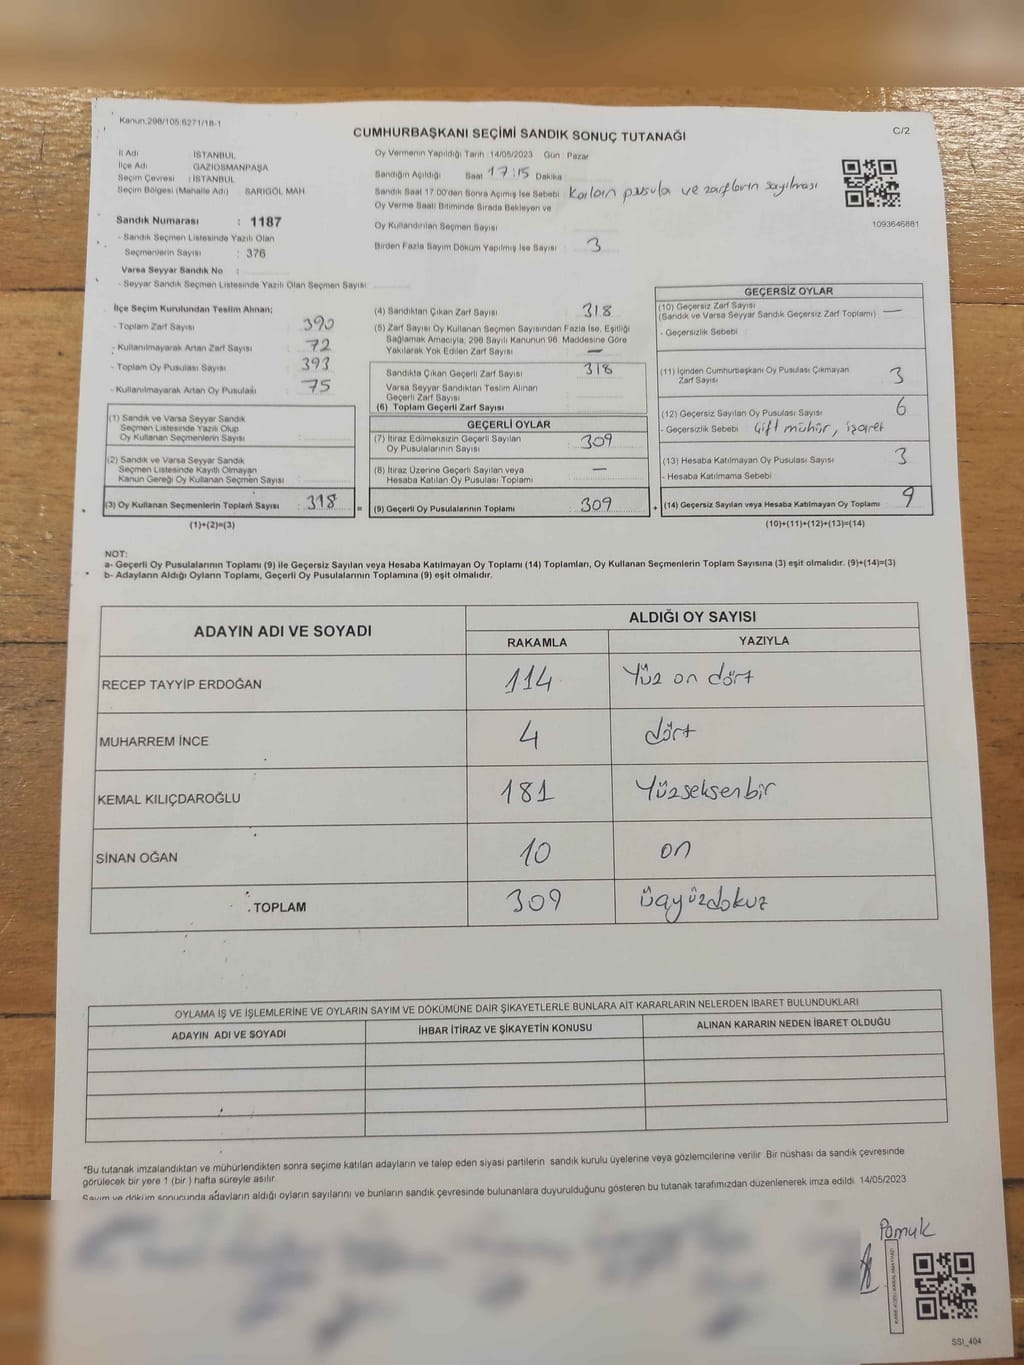 Kanun:298/105:6271/18-1
CUMHURBAŞKANI SEÇİMİ SANDIK SONUÇ TUTANAĞI
C/2
İl Adı : İSTANBUL
İlçe Adı : GAZİOSMANPAŞA
Seçim Çevresi : İSTANBUL
Seçim Bölgesi (Mahalle Adı) SARIGÖL MAH
Oy Vermenin Yapıldığı Tarih 14/05/2023 Gün Pazar
Sandığın Açıldığı Saat 17:15 Dakika
Sandık Saat 17.00'den Sonra Açılmış İse Sebebi Kalan pusula ve zarfların sayılması
Oy Verme Saati Bitiminde Sırada Bekleyen ve
Oy Kullandırılan Seçmen Sayısı
Birden Fazla Sayım Döküm Yapılmış İse Sayısı 3
1093646881
Sandık Numarası : 1187
- Sandık Seçmen Listesinde Yazılı Olan
Seçmenlerin Sayısı : 376
Varsa Seyyar Sandık No :
- Seyyar Sandık Seçmen Listesinde Yazılı Olan Seçmen Sayısı:
İlçe Seçim Kurulundan Teslim Alınan;
- Toplam Zarf Sayısı : 390
- Kullanılmayarak Artan Zarf Sayısı : 72
- Toplam Oy Pusulası Sayısı : 393
- Kullanılmayarak Artan Oy Pusulası : 75
(1) Sandık ve Varsa Seyyar Sandık
Seçmen Listesinde Yazılı Olup
Oy Kullanan Seçmenlerin Sayısı
(2) Sandık ve Varsa Seyyar Sandık
Seçmen Listesinde Kayıtlı Olmayan
Kanun Gereği Oy Kullanan Seçmen Sayısı
(3) Oy Kullanan Seçmenlerin Toplam Sayısı : 318
(1)+(2)=(3)
(4) Sandıktan Çıkan Zarf Sayısı 318
(5) Zarf Sayısı Oy Kullanan Seçmen Sayısından Fazla İse, Eşitliği
Sağlamak Amacıyla; 298 Sayılı Kanunun 98. Maddesine Göre
Yakılarak Yok Edilen Zarf Sayısı —
Sandıkta Çıkan Geçerli Zarf Sayısı 318
Varsa Seyyar Sandıktan Teslim Alınan
Geçerli Zarf Sayısı
(6) Toplam Geçerli Zarf Sayısı
GEÇERLİ OYLAR
(7) İtiraz Edilmeksizin Geçerli Sayılan
Oy Pusulalarının Sayısı : 309
(8) İtiraz Üzerine Geçerli Sayılan veya
Hesaba Katılan Oy Pusulası Toplamı —
= (9) Geçerli Oy Pusulalarının Toplamı : 309
GEÇERSİZ OYLAR
(10) Geçersiz Zarf Sayısı
(Sandık ve Varsa Seyyar Sandık Geçersiz Zarf Toplamı) —
- Geçersizlik Sebebi :
(11) İçinden Cumhurbaşkanı Oy Pusulası Çıkmayan
Zarf Sayısı 3
(12) Geçersiz Sayılan Oy Pusulası Sayısı 6
- Geçersizlik Sebebi Çift mühür, işaret
(13) Hesaba Katılmayan Oy Pusulası Sayısı 3
- Hesaba Katılmama Sebebi
+ (14) Geçersiz Sayılan veya Hesaba Katılmayan Oy Toplamı 9
(10)+(11)+(12)+(13)=(14)
NOT:
a- Geçerli Oy Pusulalarının Toplamı (9) ile Geçersiz Sayılan veya Hesaba Katılmayan Oy Toplamı (14) Toplamları, Oy Kullanan Seçmenlerin Toplam Sayısına (3) eşit olmalıdır. (9)+(14)=(3)
b- Adayların Aldığı Oyların Toplamı, Geçerli Oy Pusulalarının Toplamına (9) eşit olmalıdır.
ADAYIN ADI VE SOYADI
ALDIĞI OY SAYISI
RAKAMLA YAZIYLA
RECEP TAYYİP ERDOĞAN 114 Yüz on dört
MUHARREM İNCE 4 dört
KEMAL KILIÇDAROĞLU 181 Yüzseksenbir
SİNAN OĞAN 10 on
TOPLAM 309 üçyüzdokuz
OYLAMA İŞ VE İŞLEMLERİNE VE OYLARIN SAYIM VE DÖKÜMÜNE DAİR ŞİKAYETLERLE BUNLARA AİT KARARLARIN NELERDEN İBARET BULUNDUKLARI
ADAYIN ADI VE SOYADI İHBAR İTİRAZ VE ŞİKAYETİN KONUSU ALINAN KARARIN NEDEN İBARET OLDUĞU
*Bu tutanak imzalandıktan ve mühürlendikten sonra seçime katılan adayların ve talep eden siyasi partilerin sandık kurulu üyelerine veya gözlemcilerine verilir. Bir nüshası da sandık çevresinde
görülecek bir yere 1 (bir) hafta süreyle asılır.
Sayım ve döküm sonucunda adayların aldığı oyların sayılarını ve bunların sandık çevresinde bulunanlara duyurulduğunu gösteren bu tutanak tarafımızdan düzenlenerek imza edildi. 14/05/2023
Pamuk
SSI_404